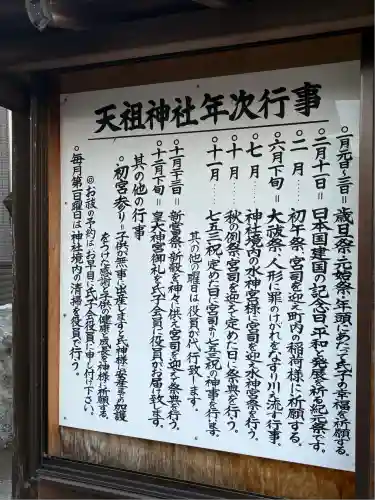 天祖神社年次行事
○一月元旦~三日=歳旦祭・元始祭・年頭にあたって氏子の幸福を祈願する。
○二月十一日=日本国建国の記念日・平和と発展を祈る紀元祭です。
○二月……初午祭・宮司を迎え町内の稲荷様に祈願する。
○六月下旬=大祓祭・人形に罪のけがれをなすり川え流す行事。
○七月……神社境内の水神宮様に宮司を迎え水神宮祭を行う。
○十月……秋の例祭・宮司を迎えて定めた一日に祭典を行う。
○十一月……七五三祝・定めた日に宮司より七五三祝の神事を行ます。
其の他の曜日は役員が代行致します。
○十一月二十三日=新嘗祭・新穀を神々に供え宮司を迎え祭典を行う。
○十二月下旬=皇大神宮御札を氏子会員に役員がお届け致します。
其の他の行事
○初宮参り=子供が無事に出産しますと氏神様に安産までの加護
をうけた感謝と子供の健康と成長を神様に祈願する。
◎お祓の予約はお早目に氏子会役員に申し付け下さい。
○毎月第一日曜日は神社境内の清掃を役員で行う。